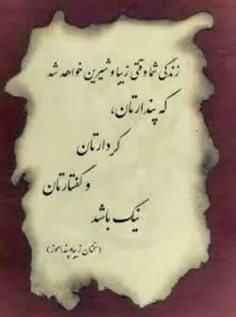 زندگی شما وقتی زیبا و شیرین خواهد شد
که پندارتان،
کردارتان
و گفتارتان
نیک باشد
(سخنان زیبا و پندآموز)